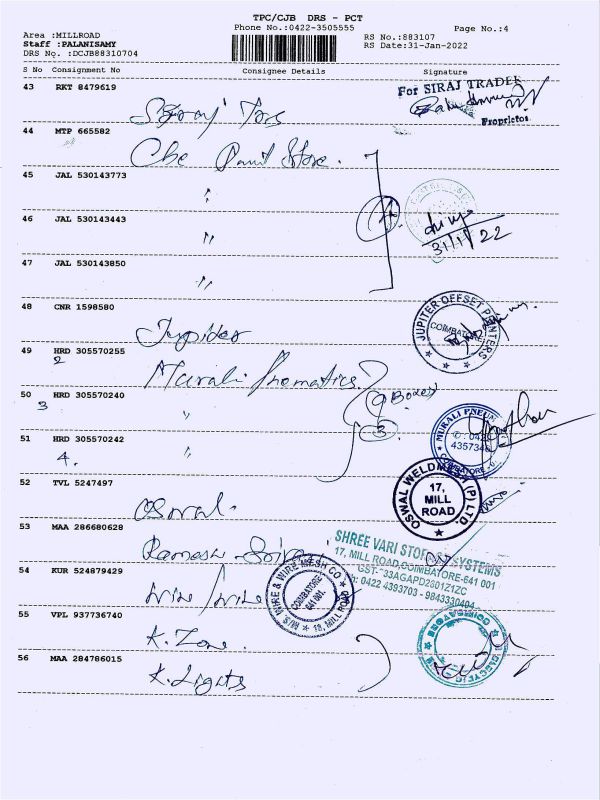 TPC/CJB DRS - PCT
Phone No.:0422-3505555
Page No.:4
Area :MILLROAD
Staff :PALANISAMY
DRS No. :DCJB88310704
RS No.:883107
RS Date:31-Jan-2022
S No Consignment No Consignee Details Signature
43 RKT 8479619
Siraj Trs
For SIRAJ TRADER
Proprietor
44 MTP 665582
Cbe Paint Store.
45 JAL 530143773
"
46 JAL 530143443
"
31/1/22
47 JAL 530143850
"
48 CNR 1598580
Jupiter
JUPITER OFFSET PRINTERS
COIMBATORE
49 HRD 305570255
2
Murali Pnematics
50 HRD 305570240
3
"
9 Boxes
3
MURALI PNEUM
0422
4357346
COIMBATORE
51 HRD 305570242
4.
"
52 TVL 5247497
Oswal
OSWAL WELDMESH (P) LTD.
17,
MILL
ROAD
53 MAA 286680628
Ramesh
SHREE VARI STORAGE SYSTEMS
17, MILL ROAD, COIMBATORE-641 001
GST- "33AGAPD2501Z1ZC
Ph: 0422 4393703 - 9843330404
54 KUR 524879429
Wire / Wire
M/S WIRE & WIRE MESH CO
COIMBATORE
641 001.
18, MILL ROAD
55 VPL 937736740
K. Zone.
COIMBATORE
56 MAA 284786015
K. Lights